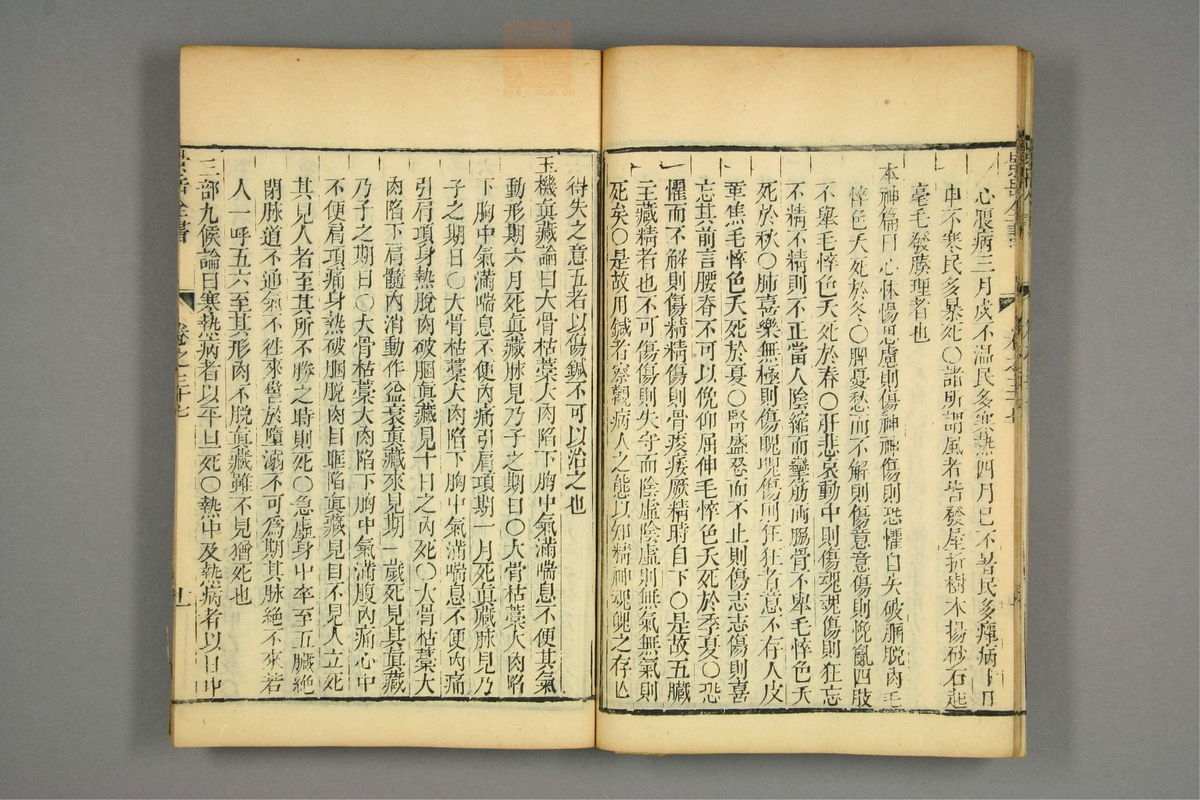 心脹病三月戌不溫民多寒熱四月巳不暑民多癉病十月
申不寒民多暴死○諸所謂風者皆發屋折樹木揚砂石起
毫毛發腠理者也
本神篇曰心怵惕思慮則傷神神傷則恐懼自失破䐃脫肉毛
悴色夭死於冬○脾憂愁而不解則傷意意傷則悗亂四肢
不舉毛悴色夭死於春○肝悲哀動中則傷魂魂傷則狂忘
不精不精則不正當人陰縮而攣筋兩脇骨不舉毛悴色夭
死於秋○肺喜樂無極則傷魄魄傷則狂狂者意不存人皮
革焦毛悴色夭死於夏○腎盛怒而不止則傷志志傷則喜
忘其前言腰脊不可以俛仰屈伸毛悴色夭死於季夏○恐
懼而不解則傷精精傷則骨痠痿厥精時自下○是故五臟
主藏精者也不可傷傷則失守而陰虛陰虛則無氣無氣則
死矣○是故用鍼者察觀病人之態以知精神魂魄之存亡
得失之意五者以傷鍼不可以治之也
玉機眞藏論曰大骨枯藁大肉陷下胸中氣滿喘息不便其氣
動形期六月死眞藏脉見乃予之期日○大骨枯藁大肉陷
下胸中氣滿喘息不便內痛引肩項期一月死眞藏脉見乃
予之期日○大骨枯藁大肉陷下胸中氣滿喘息不便內痛
引肩項身熱脫肉破䐃眞藏見十日之內死○大骨枯藁大
肉陷下肩髓內消動作益衰眞藏來見期一歲死見其眞藏
乃予之期日○大骨枯藁大肉陷下胸中氣滿腹內痛心中
不便肩項痛身熱破䐃脫肉目眶陷眞藏見目不見人立死
其見人者至其所不勝之時則死○急虛身中卒至五臟絕
閉脉道不通氣不往來譬於墮溺不可爲期其脉絕不來若
人一呼五六至其形肉不脫眞藏雖不見猶死也
三部九候論曰寒熱病者以平旦死○熱中及熱病者以日中
景岳全書
卷之三十七